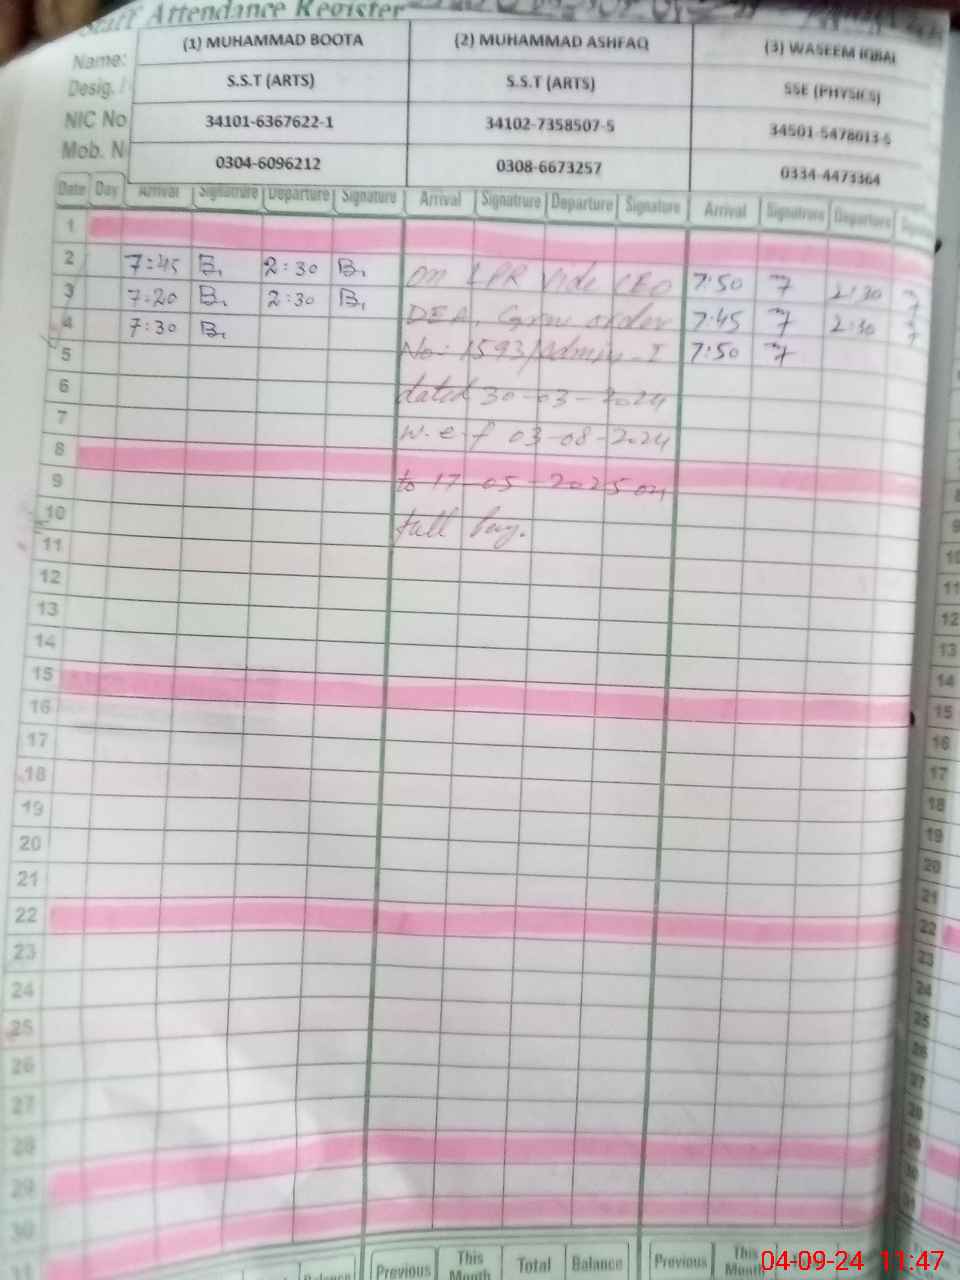 Staff Attendance Register
Name: (1) MUHAMMAD BOOTA (2) MUHAMMAD ASHFAQ (3) WASEEM IQBAL
Desig. / S.S.T (ARTS) S.S.T (ARTS) SSE (PHYSICS)
NIC No 34101-6367622-1 34102-7358507-5 34501-5478013-5
Mob. N 0304-6096212 0308-6673257 0334-4473364
Date Day Arrival Signatrure Departure Signature Arrival Signatrure Departure Signature Arrival Signatrure Departure
1
2 7:45 B. 2:30 B. on LPR vide CEO 7:50 2:30
3 7:20 B. 2:30 B. DEA, Grw order 7:45 2:30
4 7:30 B. No: 1593/Admin-I 7:50
5 dated 30-03-2024
6 w.e.f 03-08-2024
7 to 17-05-2025 on
8 full pay.
9
10
11
12
13
14
15
16
17
18
19
20
21
22
23
24
25
26
27
28
29
30
31
Balance Previous This Month Total Balance Previous This Month
8
9
10
11
12
13
14
15
16
17
18
19
20
21
22
23
24
25
26
27
28
29
30
04-09-24 11:47